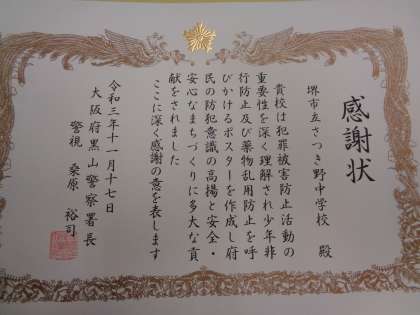 感謝状
堺市立さつき野中学校 殿
貴校は犯罪被害防止活動の
重要性を深く理解され少年非
行防止及び薬物乱用防止を呼
びかけるポスターを作成し府
民の防犯意識の高揚と安全・
安心なまちづくりに多大な貢
献をされました
ここに深く感謝の意を表します
令和三年十一月十七日
大阪府黒山警察署長
警視 桑原 裕司